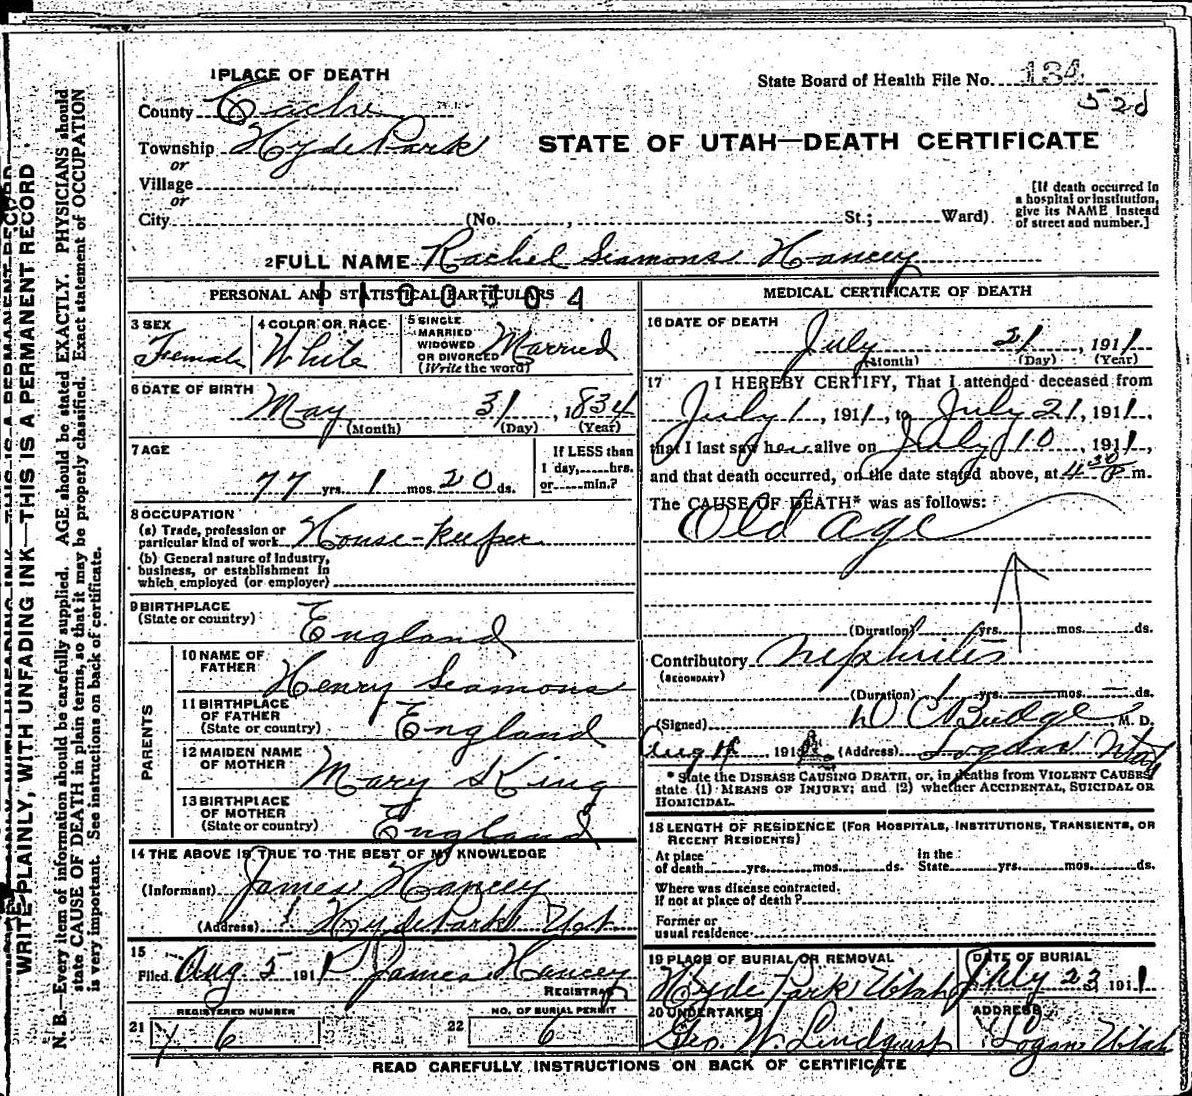 1 PLACE OF DEATH
State Board of Health File No. 134
County Cache
52d
Township Hyde Park
STATE OF UTAH—DEATH CERTIFICATE
or
Village
or
City (No. , St.; Ward)
[If death occurred in a hospital or institution, give its NAME instead of street and number.]
2 FULL NAME Rachel Seamons Hancey
PERSONAL AND STATISTICAL PARTICULARS
1100304
3 SEX Female
4 COLOR OR RACE White
5 SINGLE MARRIED WIDOWED OR DIVORCED (Write the word) Married
6 DATE OF BIRTH
May 31, 1834
(Month) (Day) (Year)
7 AGE
77 yrs. 1 mos. 20 ds.
If LESS than 1 day, hrs. or min.?
8 OCCUPATION
(a) Trade, profession or particular kind of work House-keeper
(b) General nature of industry, business, or establishment in which employed (or employer)
9 BIRTHPLACE
(State or country) England
PARENTS
10 NAME OF FATHER Henry Seamons
11 BIRTHPLACE OF FATHER (State or country) England
12 MAIDEN NAME OF MOTHER Mary King
13 BIRTHPLACE OF MOTHER (State or country) England
14 THE ABOVE IS TRUE TO THE BEST OF MY KNOWLEDGE
(Informant) James Hancey
(Address) Hyde Park Ut
15
Filed Aug 5 1911 James Hancey
REGISTRAR
REGISTERED NUMBER
21 6
NO. OF BURIAL PERMIT
22 6
MEDICAL CERTIFICATE OF DEATH
16 DATE OF DEATH
July 21, 1911
(Month) (Day) (Year)
17 I HEREBY CERTIFY, That I attended deceased from
July 1, 1911, to July 21, 1911,
that I last saw her alive on July 10 1911,
and that death occurred, on the date stated above, at 4 30 P m.
The CAUSE OF DEATH* was as follows:
Old age
(Duration) yrs. mos. ds.
Contributory Nephritis
(SECONDARY)
(Duration) 1 yrs. — mos. — ds.
(Signed) D C Budge M. D.
Aug 1911 (Address) Logan Utah
* State the DISEASE CAUSING DEATH, or, in deaths from VIOLENT CAUSES,
state (1) MEANS OF INJURY; and (2) whether ACCIDENTAL, SUICIDAL OR
HOMICIDAL.
18 LENGTH OF RESIDENCE (FOR HOSPITALS, INSTITUTIONS, TRANSIENTS, OR
RECENT RESIDENTS)
At place of death yrs. mos. ds. In the State yrs. mos. ds.
Where was disease contracted,
if not at place of death?
Former or
usual residence
19 PLACE OF BURIAL OR REMOVAL
Hyde Park Utah
DATE OF BURIAL
July 23 1911
20 UNDERTAKER
Geo. W. Lindquist
ADDRESS
Logan Utah
READ CAREFULLY INSTRUCTIONS ON BACK OF CERTIFICATE
WRITE PLAINLY, WITH UNFADING INK—THIS IS A PERMANENT RECORD
N. B.—Every item of information should be carefully supplied. AGE should be stated EXACTLY. PHYSICIANS should
state CAUSE OF DEATH in plain terms, so that it may be properly classified. Exact statement of OCCUPATION
is very important. See instructions on back of certificate.